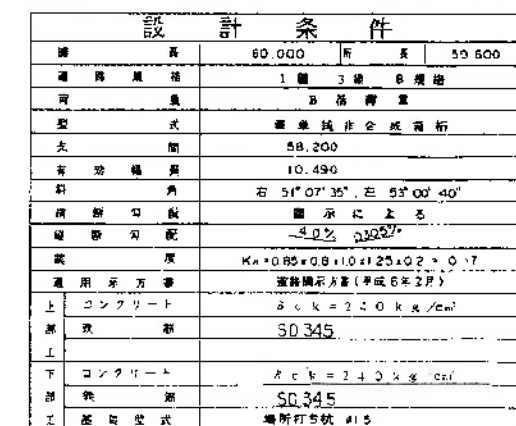 設計条件
橋長 60.000 桁長 59.600
道路規格 1種 3級 B規格
荷重 B活荷重
型式 単純非合成箱桁
支間 58.200
有効幅員 10.490
斜角 右 51°07'35", 左 53°00'40"
横断勾配 図示による
縦断勾配 4.0%
震度
適用示方書 道路橋示方書(平成6年2月)
上 コンクリート σck=240kg/cm²
部 鉄筋 SD345
工
下 コンクリート σck=240kg/cm²
部 鉄筋 SD345
工 基礎型式 場所打ち杭